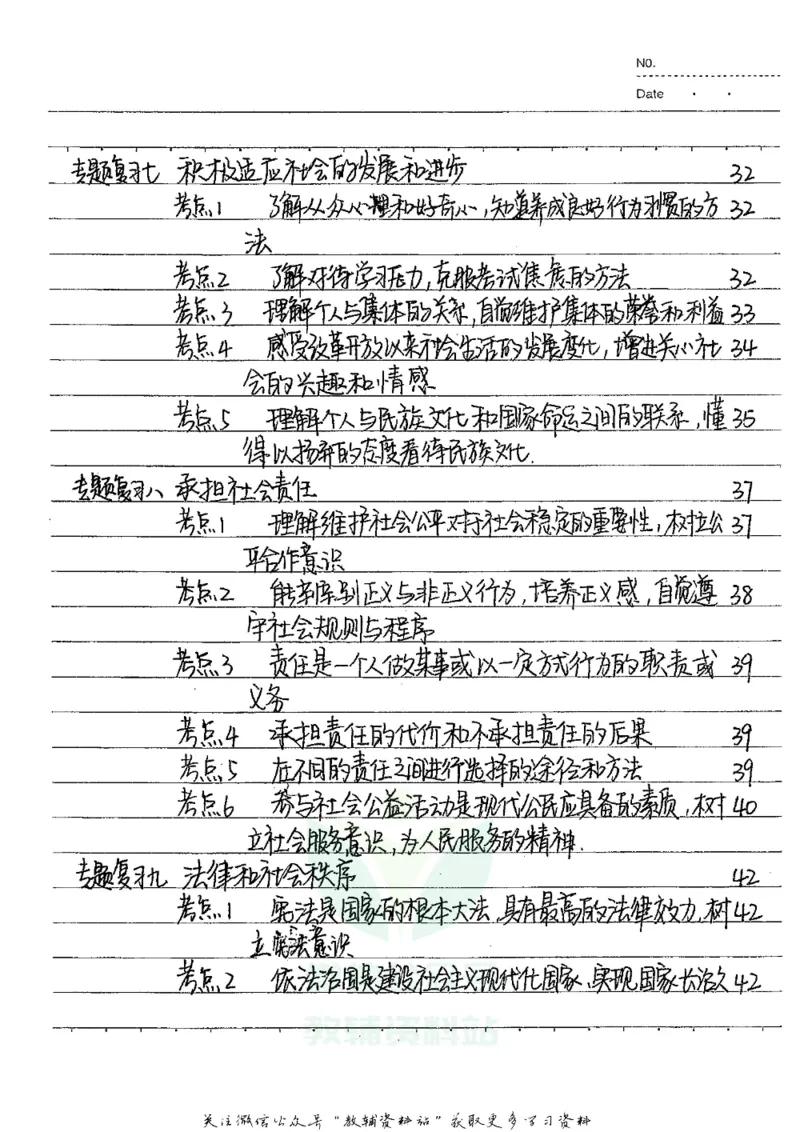 No.
Date
专题复习七 积极适应社会的发展和进步 32
考点1 了解从众心理和好奇心,知道养成良好行为习惯的方 32
法
考点2 了解对待学习压力,克服考试焦虑的方法 32
考点3 理解个人与集体的关系,自觉维护集体的荣誉和利益 33
考点4 感受改革开放以来社会生活的发展变化,增进关心社 34
会的兴趣和情感
考点5 理解个人与民族文化和国家命运之间的联系,懂 35
得以扬弃的态度看待民族文化.
专题复习八 承担社会责任 37
考点1 理解维护社会公平对于社会稳定的重要性,树立公 37
平合作意识
考点2 能辛库别正义与非正义行为,培养正义感,自觉遵 38
守社会规则与程序
考点3 责任是一个人做某事或以一定方式行为的职责或 39
义务
考点4 承担责任的代价和不承担责任的后果 39
考点5 在不同的责任之间进行选择的途径和方法 39
考点6 参与社会公益活动是现代公民应具备的素质,树 40
立社会服务意识,为人民服务的精神.
专题复习九 法律和社会秩序 42
考点1 宪法是国家的根本大法,具有最高的法律效力,树 42
立宪法意识
考点2 依法治国是建设社会主义现代化国家、实现国家长治久 42
教辅资料站
关注微信公众号"教辅资料站"获取更多学习资料